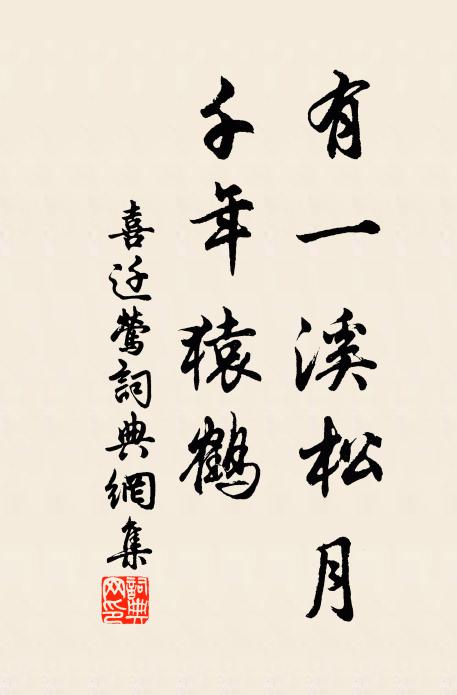 有一溪松月
千年猿鶴
喜迁鶯詞典網集
詞典网印